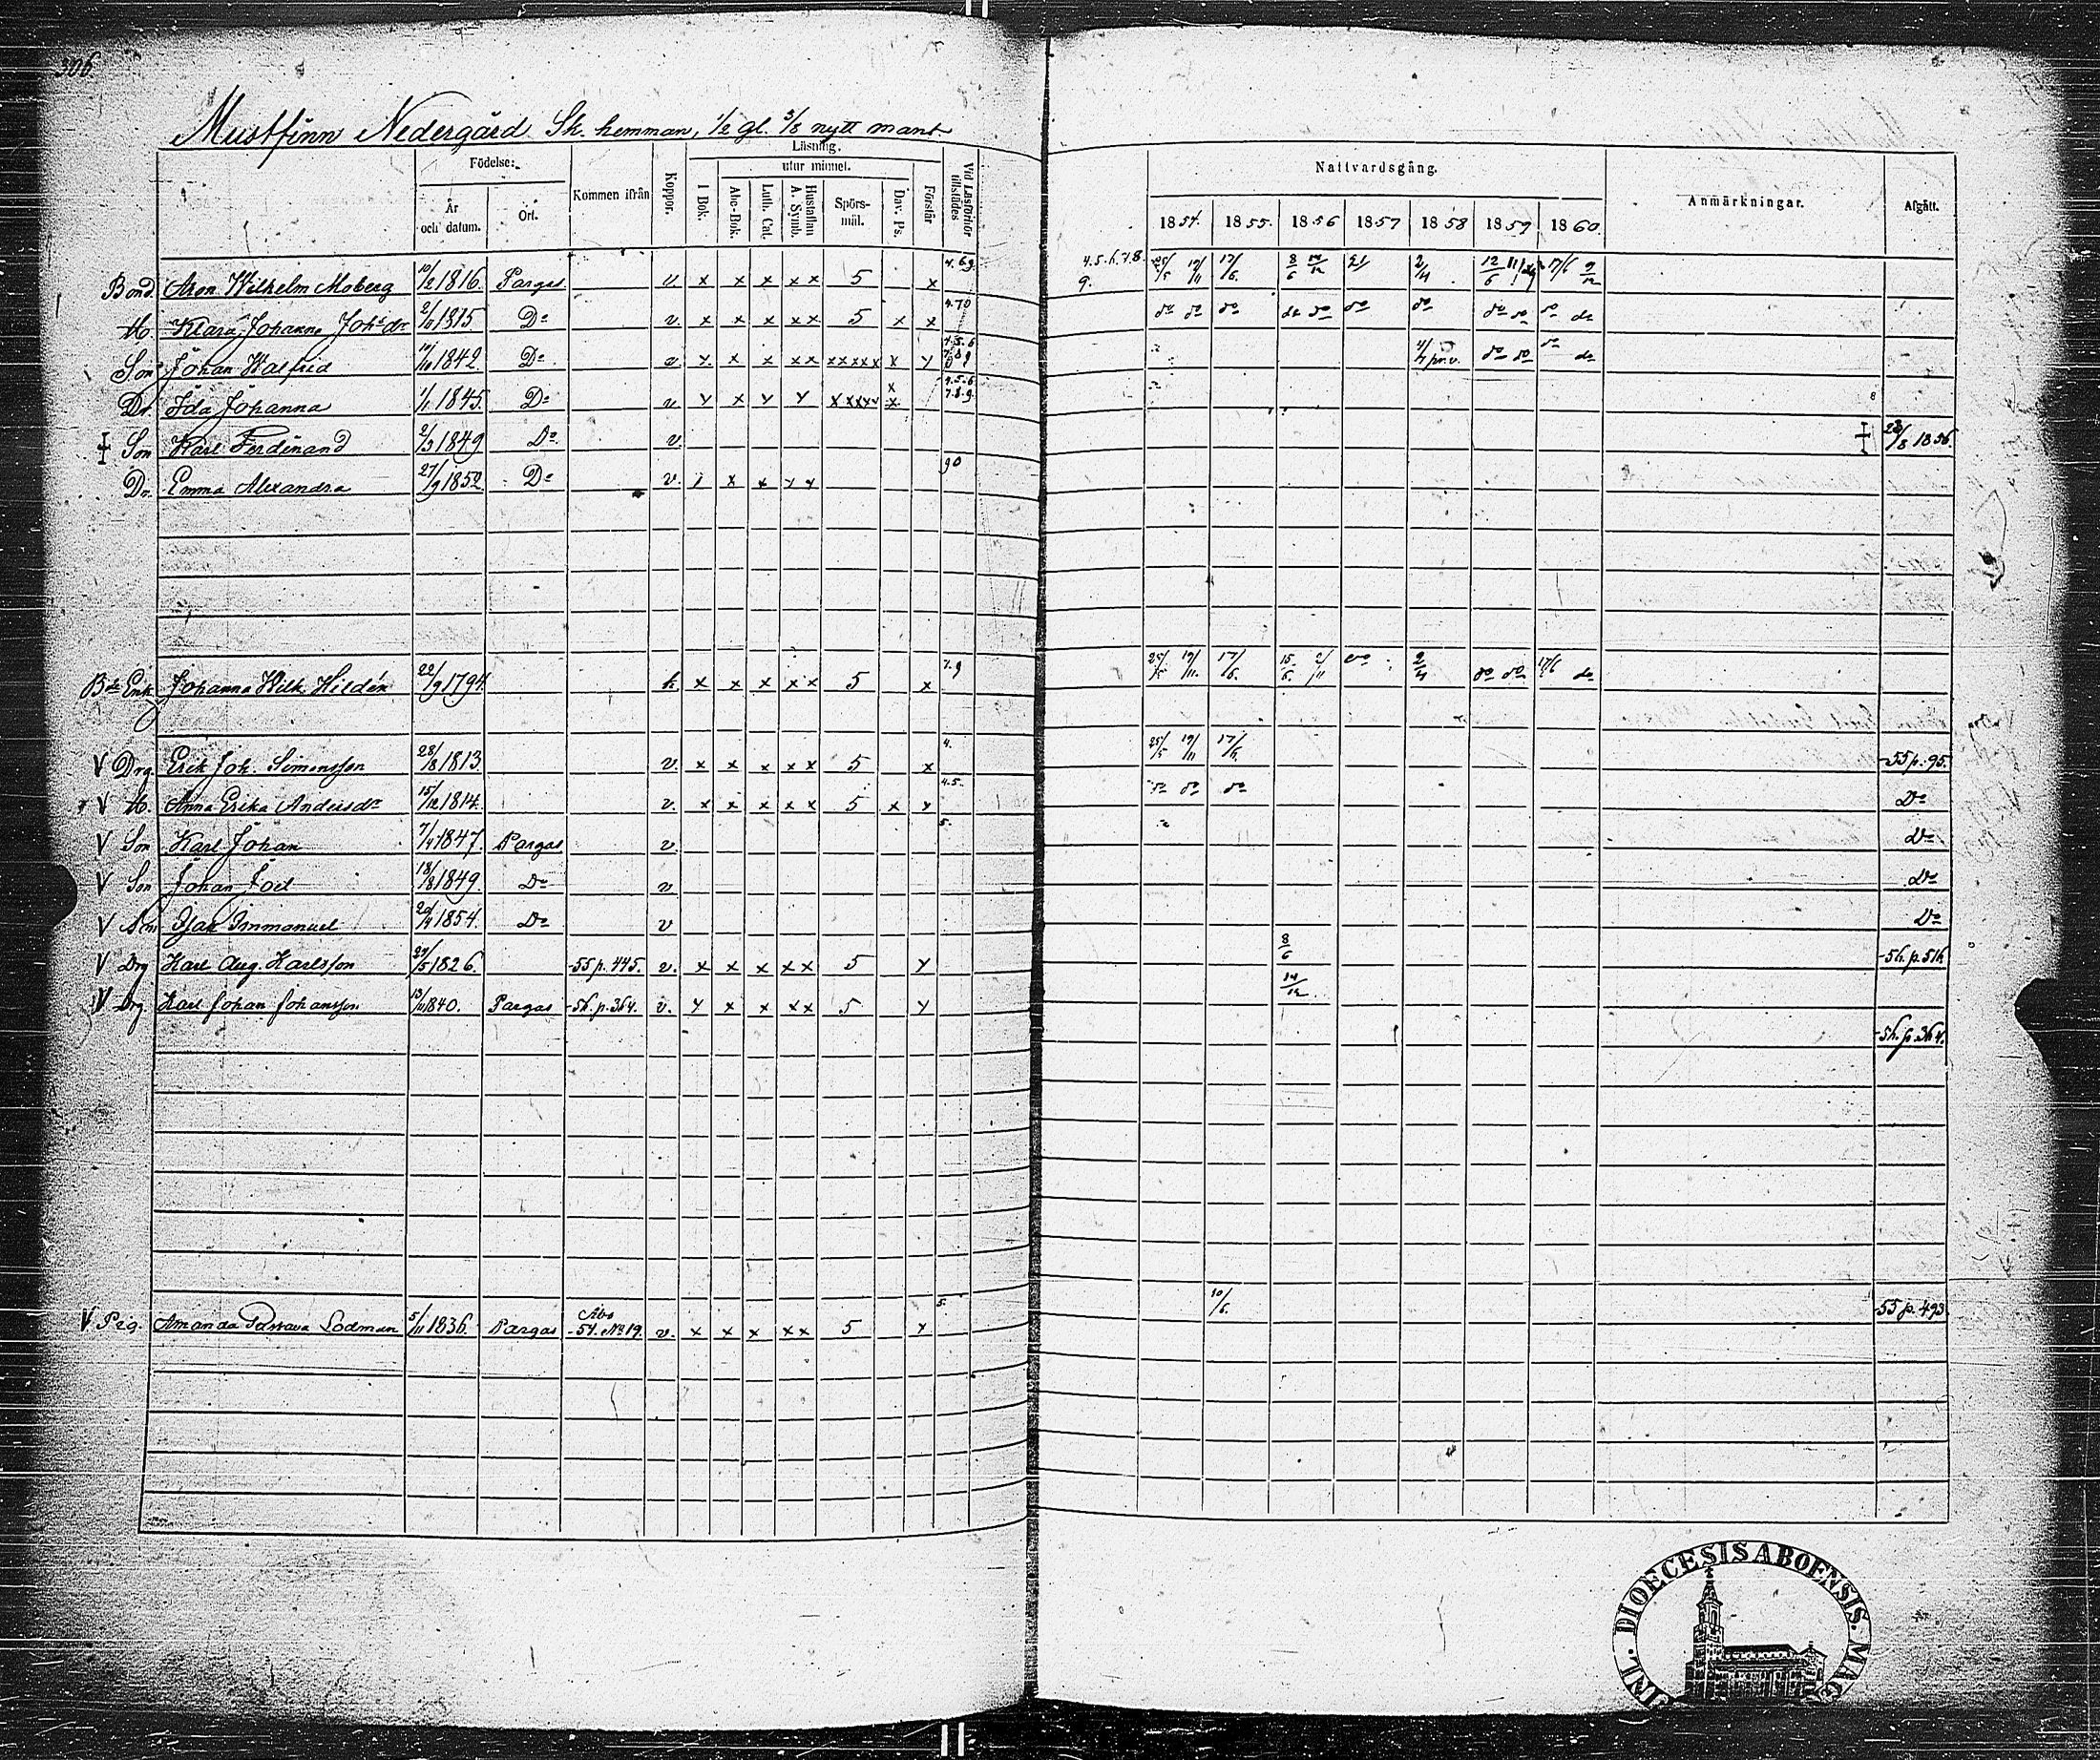 306
Mustfinn Nedergård Sk. hemman, 1/2 gl. 3/8 nytt mant
Födelse: Kommen ifrån Koppor. Läsning. Vid Läsförhör tillstädes Nattvardsgång. Anmärkningar. Afgått.
utur minnet.
År och datum. Ort. I Bok. Abc-Bok. Luth. Cat. Hustaflan A. Symb. Spörs-mål. Dav. Ps. Förstår 1854. 1855. 1856 1857 1858 1859 1860.
Bond. Aron Wilhelm Moberg 10/2 1816. Pargas v x x x x x 5 x 4.6.9. 4.5.6.7.8.9. 25/5 19/11 17/6. 8/6 14/12 2/4 12/6 17/6 9/12
H. Klara Johanna Johsdr 2/11 1815 Do v. x x x x x 5 x x do do do do do do do do do do do
Son Johan Walfrid 10/10 1842. Do v. x x x x x xxxxx x x 4/7 pr.v. do do do do
Dr. Ida Johanna 1/1 1845. Do v x x x x xxxxx x x 4.5.6 7.8.9.
Son Karl Ferdinand 2/3 1849 Do. v. 23/8 1856.
Dr. Emma Alexandra 27/9 1852. Do v. x x x x 90
Bde Enk. Johanna Wilh. Hildén 22/9 1794. k. x x x x x 5 x 7.9 25/5 19/11. 17/6. 15/6. 2/11 do 2/4 do do 17/6 do
V Drg. Erik Joh. Simonsson 28/8 1813. v. x x x x x 5 x 4. 25/5 19/11 17/6. -55 p. 95.
V H. Anna Erika Andersdr 15/12 1814. v. x x x x x 5 x x 4.5. do do do Do
V Son Karl Johan 7/4 1847. Pargas v. 5. Do
V Son Johan Joel 18/8 1849. Do v Do
V Son Isak Immanuel 20/4 1854. Do v Do
V Drg Karl Aug. Karlsson 27/5 1826. -55 p. 445. v. x x x x x 5 x 8/6 -56. p. 516
V Drg. Karl Johan Johansson 13/11 1840. Pargas -56. p. 364. v. x x x x x 5 x 14/12. -56. p. 364.
V Pig. Amanda Lodman 5/11 1836. Pargas Åbo -54. No 19. v. x x x x x 5 x 5. 10/6. -55 p. 493.
INL. DIOECESIS ABOENSIS. MAG